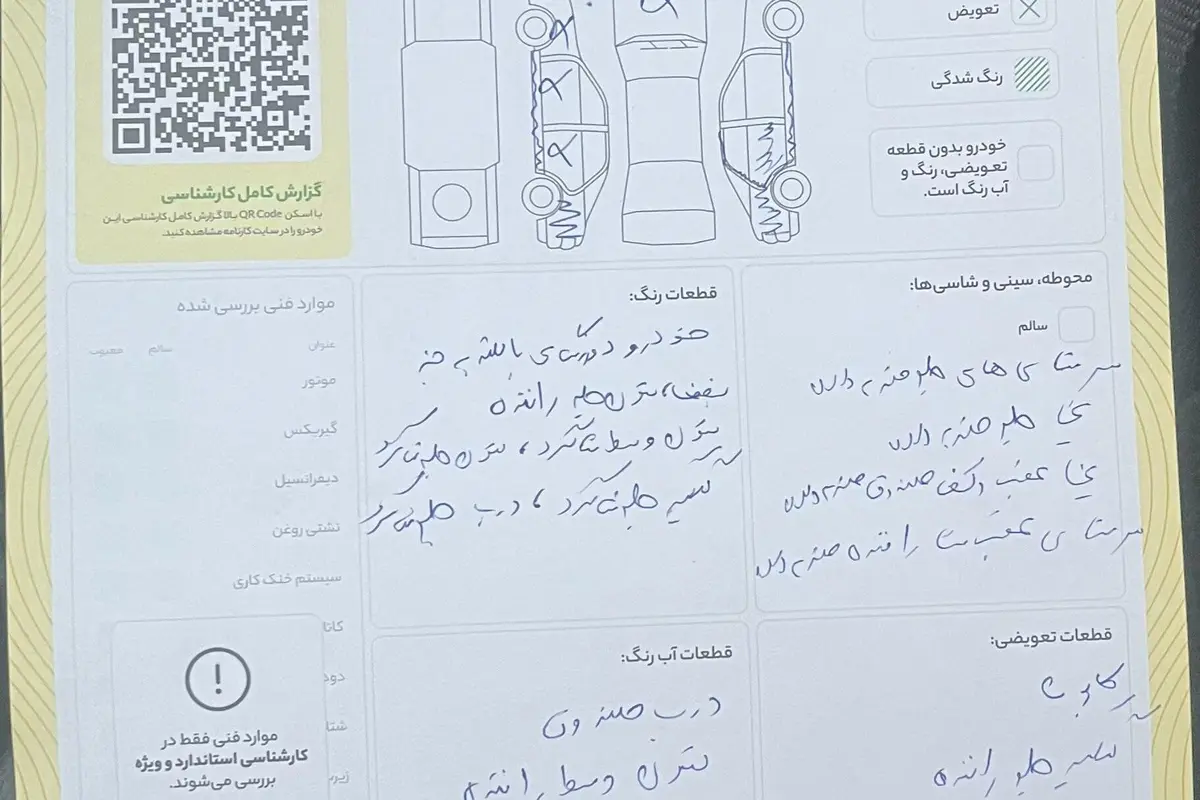 تعویض
رنگ شدگی
خودرو بدون قطعه
تعویضی، رنگ و
آب رنگ است.
گزارش کامل کارشناسی
با اسکن QR Code بالا گزارش کامل کارشناسی این
خودرو را در سایت کارنامه مشاهده کنید.
محوطه، سینی و شاسی‌ها:
سالم
سر شاسی های جلو ضربه دارد
سینی جلو ضربه دارد
سینی عقب و کف صندوق ضربه دارد
سر شاسی عقب سمت راننده ضربه دارد
قطعات رنگ:
خودرو دور رنگ
ستون جلو راننده
ستون وسط شاگرد، ستون جلو شاگرد
گلگیر جلو شاگرد، درب جلو شاگرد
موارد فنی بررسی شده
عنوان
سالم
معیوب
موتور
گیربکس
دیفرانسیل
نشتی روغن
سیستم خنک کاری
موارد فنی فقط در
کارشناسی استاندارد و ویژه
بررسی می‌شوند.
قطعات تعویضی:
کاپوت
گلگیر جلو راننده
قطعات آب رنگ:
درب صندوق
ستون وسط راننده